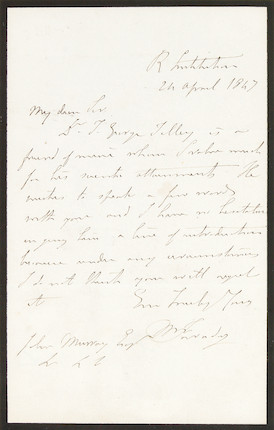 R Institution
24 April 1847
My dear Sir
Dr. T. George Tilley is a
friend of mine whom I value much
for his mental attainments He
wishes to speak a few words
with you and I have no hesitation
in giving him a line of introduction
because under any circumstances
I do not think you will regret
it
Ever Truly Yours
M Faraday
John Murray Esq
&c &c